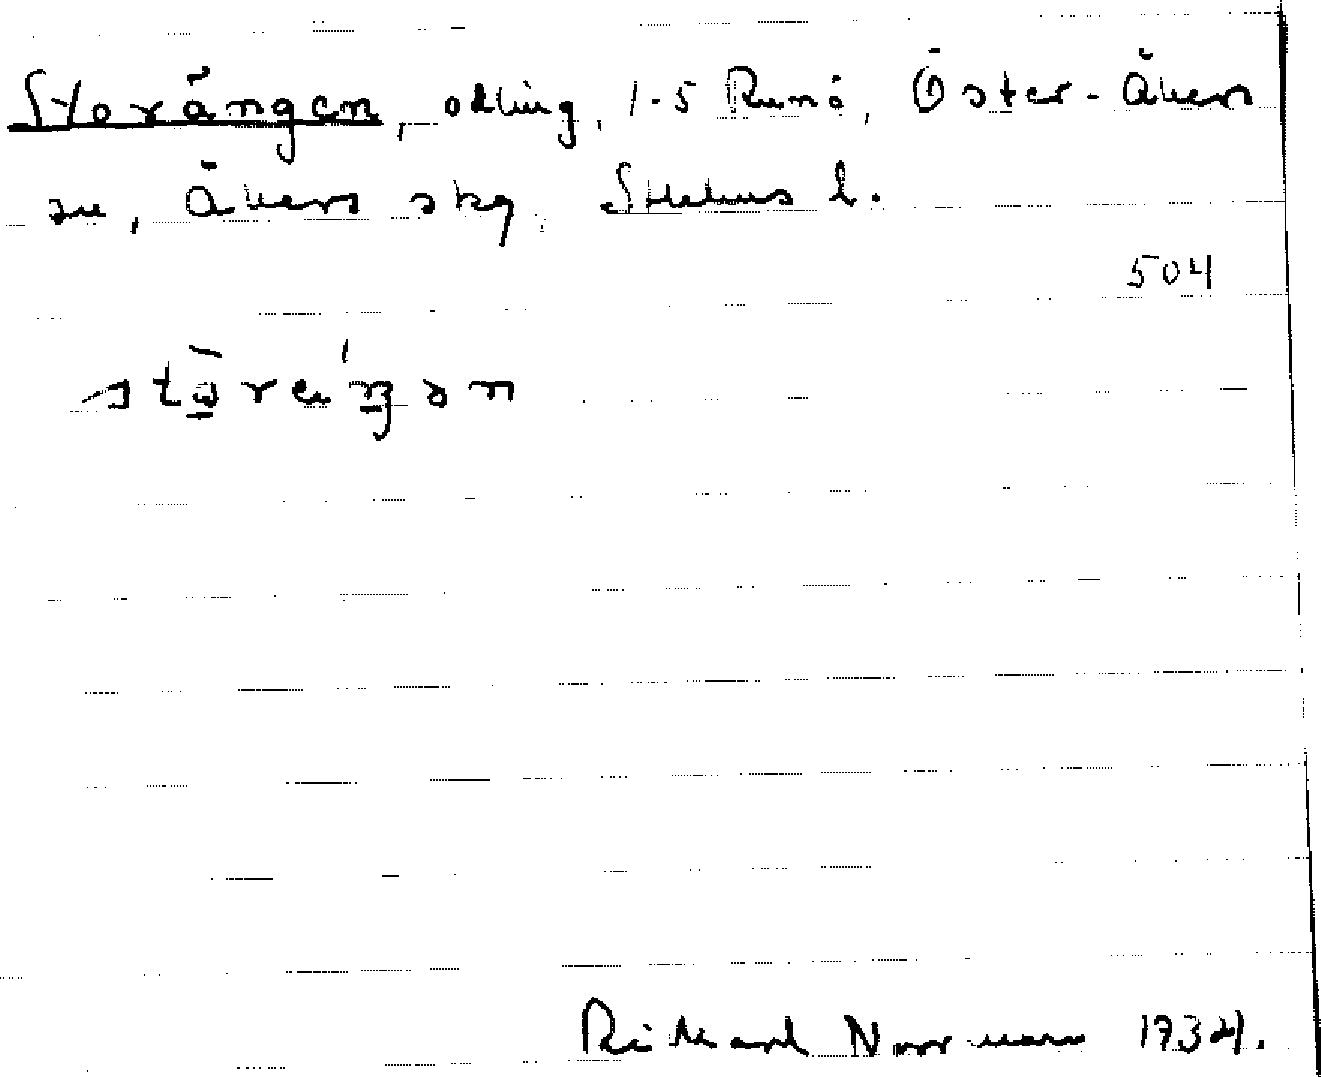 Storängen, odling, 1-5 Runö, Öster-Åkers
sn, Åkers skg. Sthlms l.
504
Rickard Norrman 1934.